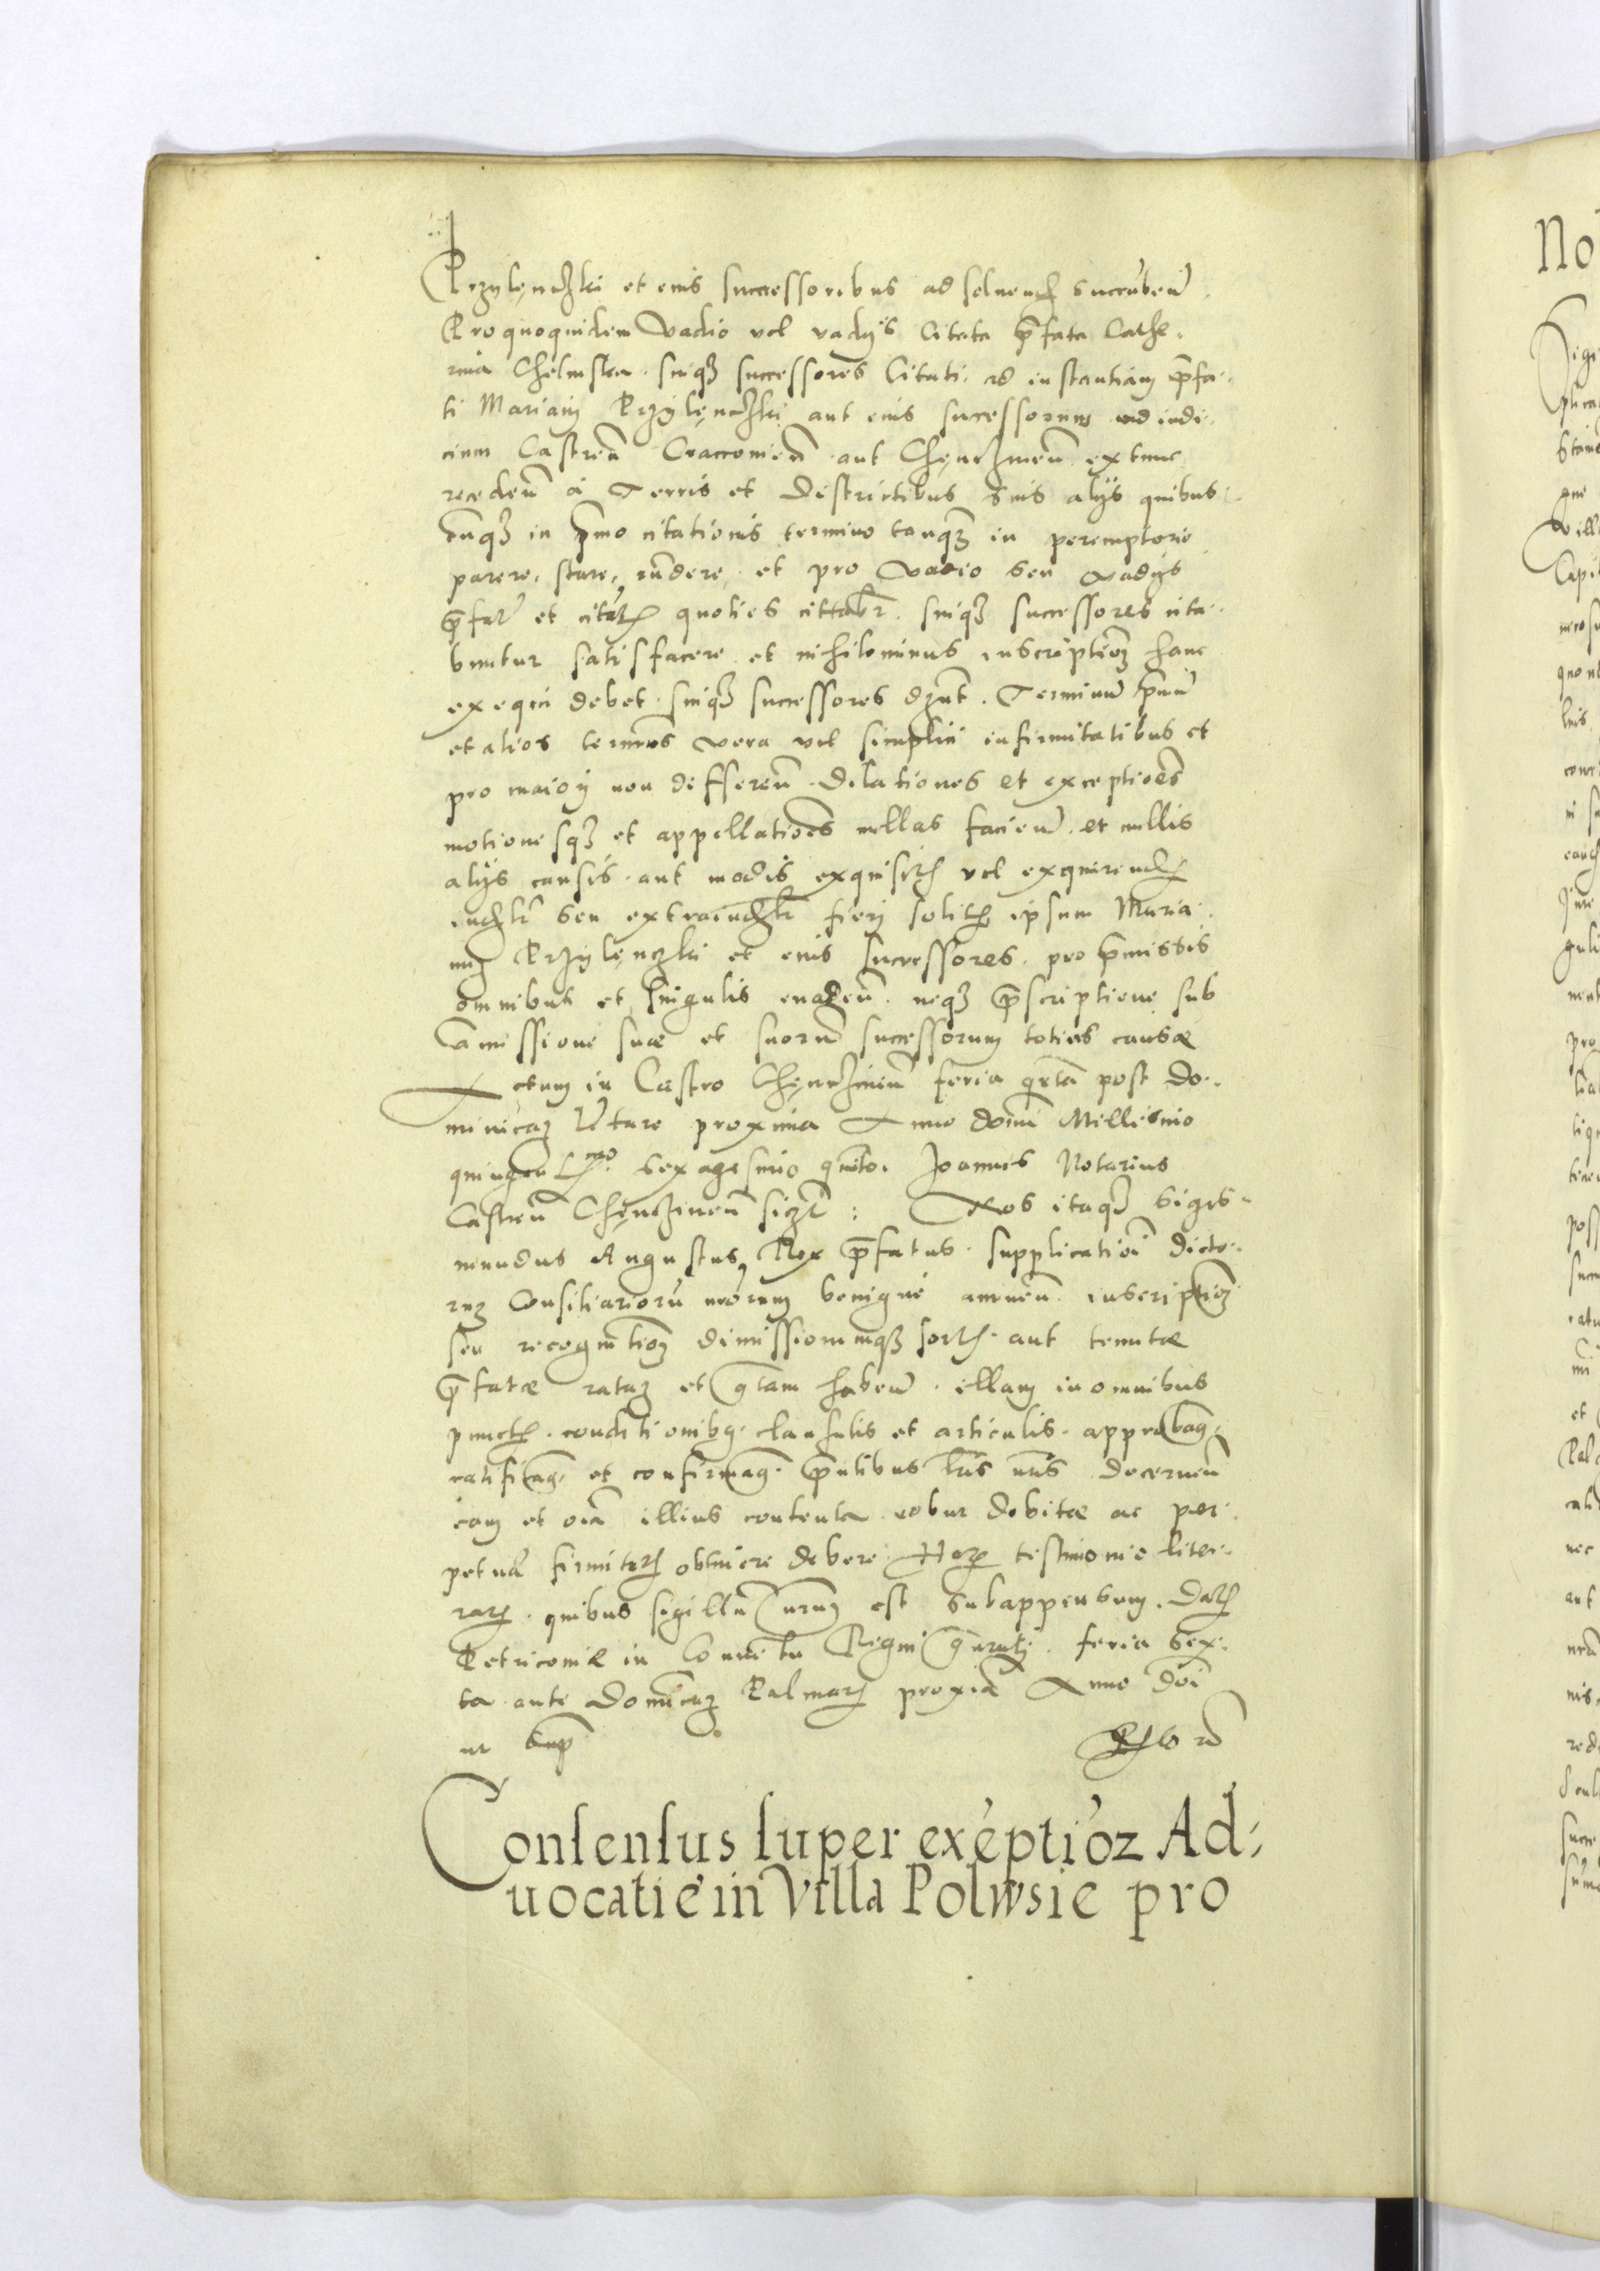 Przylęnczki et eius successoribus ad soluend succubeñ
Pro quoquidem Vadio vel vadys Citata pfata Cathe-
rina Chelmska suiqȝ successores Citati ad instantiam pfa-
ti Mariani Przylęnczki aut eius sucessorum ad iudi-
cium Castreñ Cracovieñ aut Chęnczineñ extunc
recedeñ á Terris et Districtibus suis alys quibus-
cunqȝ in pmo citationis termino tanqȝ in peremptorio
parere, stare, rñdere et pro Vadio seu vadys
pfat et citat quoties cittabr suiqȝ successores cita-
buntur satisfacere et nihilominus inscription hanc
exequi debet suiqȝ successores dbnt. Terminũ pmũ
et alios terminos vera vel simplici infirmitatibus et
pro maiori non differeñ Dilationes et exceptiões
motionesqȝ et appellatiões nullas facieñ et nullis
alys causis aut modis exquisit vel exquirend
iudlr seu extraiudlr fieri solit ipsum Maria-
nuȝ Przylęnczki et eius successores pro pmissis
omnibus et singulis euadeñ neqȝ pscriptione sub
amissione suæ et suorũ successorum toties causæ
Actum in Castro Chęnczineñ feria qrta post Do-
minicaȝ Lẽtare proxima Anno domi Millesimo
quingentmo sexagesimo quinto. Joannes Notarius
Castreñ Chęnczineñ sszt: Nos itaqȝ Sigis-
mundus Augustus Rex pfatus supplicatiõi dicto-
ruȝ Consiliariorũ nrorum benigne annueñ inscriptioȝ
seu recognitioȝ dimissionemqȝ sort aut tenutæ
pfatæ rataȝ et gtam habeñ illam in omnibus
punct conditionibȝ clausulis et articulis approbaȝ
ratificaȝ et confirmaȝ pntibus lris nris decerneñ
eam et oia illius contenta robur debitæ ac per-
petuæ firmitat obtinere debere Hor testimonio liter-
rar quibus sigillũ nrum est subappensum. Dat
Petricoviæ in Conuentu Regni gnrali feria Sex-
ta ante Dominicaȝ Palmar proxia Anno Doi
ut sup
Consensus super exeptioz Ad-
uocatie in Villa Polwsie pro